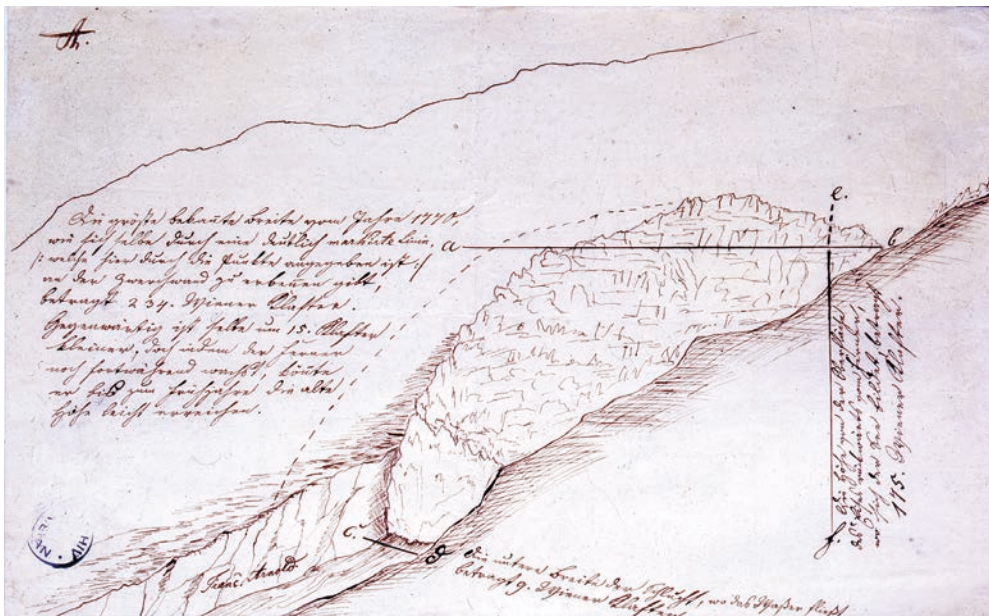 A.
e.
Die größte bekannte Breite vom Jahre 1770,
wie sich selbe durch eine deutlich markirte Linie,
a
b
/: welche hier durch die Punkte angegeben ist :/
an der Zwerchwand zu erkennen gibt,
betragt 234. Wiener Klafter.
Gegenwärtig ist selbe um 15. Klafter
kleiner, doch indem der Ferner
noch fortwährend wachst, könnte
er bis zum Frühjahre, die alte
Höhe leicht erreichen.
Die Höhe von der Oberfläche
des Eises rückwärts
wo sich der See bildet, betragt
175. Wiener Klafter.
f.
c.
d
Die untere Breite der Schlucht, wo das Waßer fließt,
betragt 9. Wiener Klafter.
Arnold